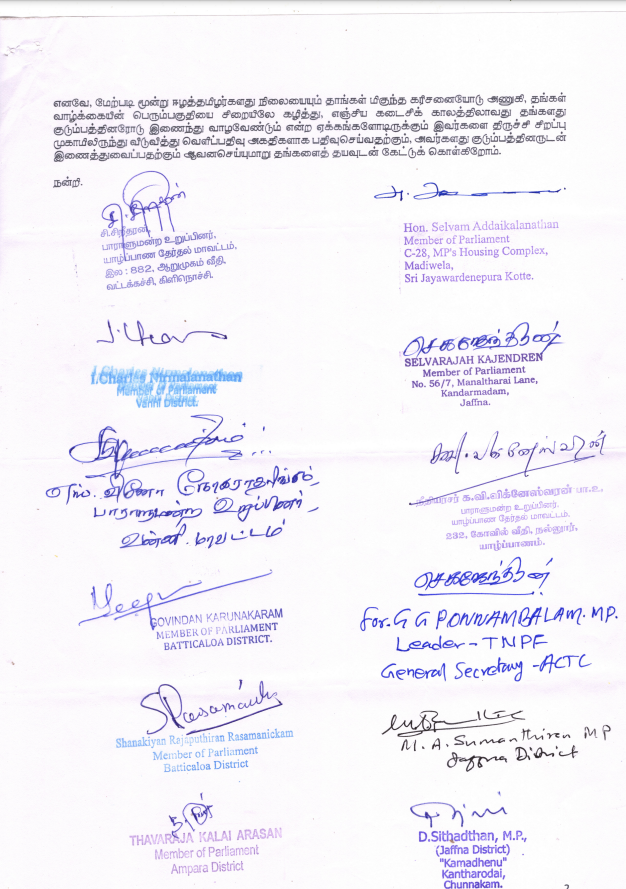 எனவே, மேற்படி மூன்று ஈழத்தமிழர்களது நிலையையும் தாங்கள் மிகுந்த கரிசனையோடு அணுகி, தங்கள்
வாழ்க்கையின் பெரும்பகுதியை சிறையிலே கழித்து, எஞ்சிய கடைசிக் காலத்திலாவது தங்களது
குடும்பத்தினரோடு இணைந்து வாழவேண்டும் என்ற ஏக்கங்களோடிருக்கும் இவர்களை திருச்சி சிறப்பு
முகாமிலிருந்து விடுவித்து வெளிப்பதிவு அகதிகளாக பதிவுசெய்வதற்கும், அவர்களது குடும்பத்தினருடன்
இணைத்துவைப்பதற்கும் ஆவனசெய்யுமாறு தங்களைத் தயவுடன் கேட்டுக் கொள்கிறோம்.
நன்றி.
சி.சிறீதரன்,
பாராளுமன்ற உறுப்பினர்.
யாழ்ப்பாண தேர்தல் மாவட்டம்.
இல : 882, ஆறுமுகம் வீதி,
வட்டக்கச்சி, கிளிநொச்சி.
Hon. Selvam Addaikalanathan
Member of Parliament
C-28, MP's Housing Complex,
Madiwela,
Sri Jayawardenepura Kotte.
I.Charles Nirmalanathan
Member of Parliament
Vanni District.
SELVARAJAH KAJENDREN
Member of Parliament
No. 56/7, Manaltharai Lane,
Kandarmadam,
Jaffna.
எம். வினோ நோகராதலிங்கம்
பாராளுமன்ற உறுப்பினர்
வன்னி மாவட்டம்
க.வி. விக்னேஸ்வரன்
நீதியரசர் க.வி.விக்னேஸ்வரன் பா.உ.
பாராளுமன்ற உறுப்பினர்.
யாழ்ப்பாண தேர்தல் மாவட்டம்.
232, கோவில் வீதி, நல்லூர்,
யாழ்ப்பாணம்.
GOVINDAN KARUNAKARAM
MEMBER OF PARLIAMENT
BATTICALOA DISTRICT.
For. G G PONNAMBALAM. MP.
Leader - TNPF
General Secretary - ACTC
Shanakiyan Rajaputhiran Rasamanickam
Member of Parliament
Batticaloa District
M. A. Sumanthiran MP
Jaffna District
THAVARAJA KALAI ARASAN
Member of Parliament
Ampara District
D.Sithadthan, M.P.,
(Jaffna District)
"Kamadhenu"
Kantharodai,
Chunnakam.